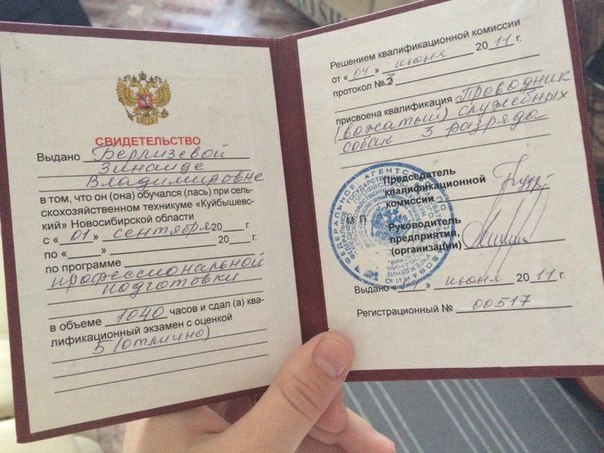 СВИДЕТЕЛЬСТВО
Выдано Берлизевой
Зинаиде
Владимировне
в том, что он (она) обучался (лась) при сель-
скохозяйственном техникуме «Куйбышевс-
кий» Новосибирской области
с «01» сентября 20 г.
по « » 20 г.
по программе
профессиональной
подготовки
в объеме 1040 часов и сдал (а) ква-
лификационный экзамен с оценкой
5 (отлично)
Решением квалификационной комиссии
от «04» июня 2011 г.
протокол № 3
присвоена квалификация Проводник
(вожатый) служебных
собак 3 разряда
Председатель
квалификационной
комиссии
М П
Руководитель
предприятия,
(организации)
Выдано июня 2011 г.
Регистрационный № 00517